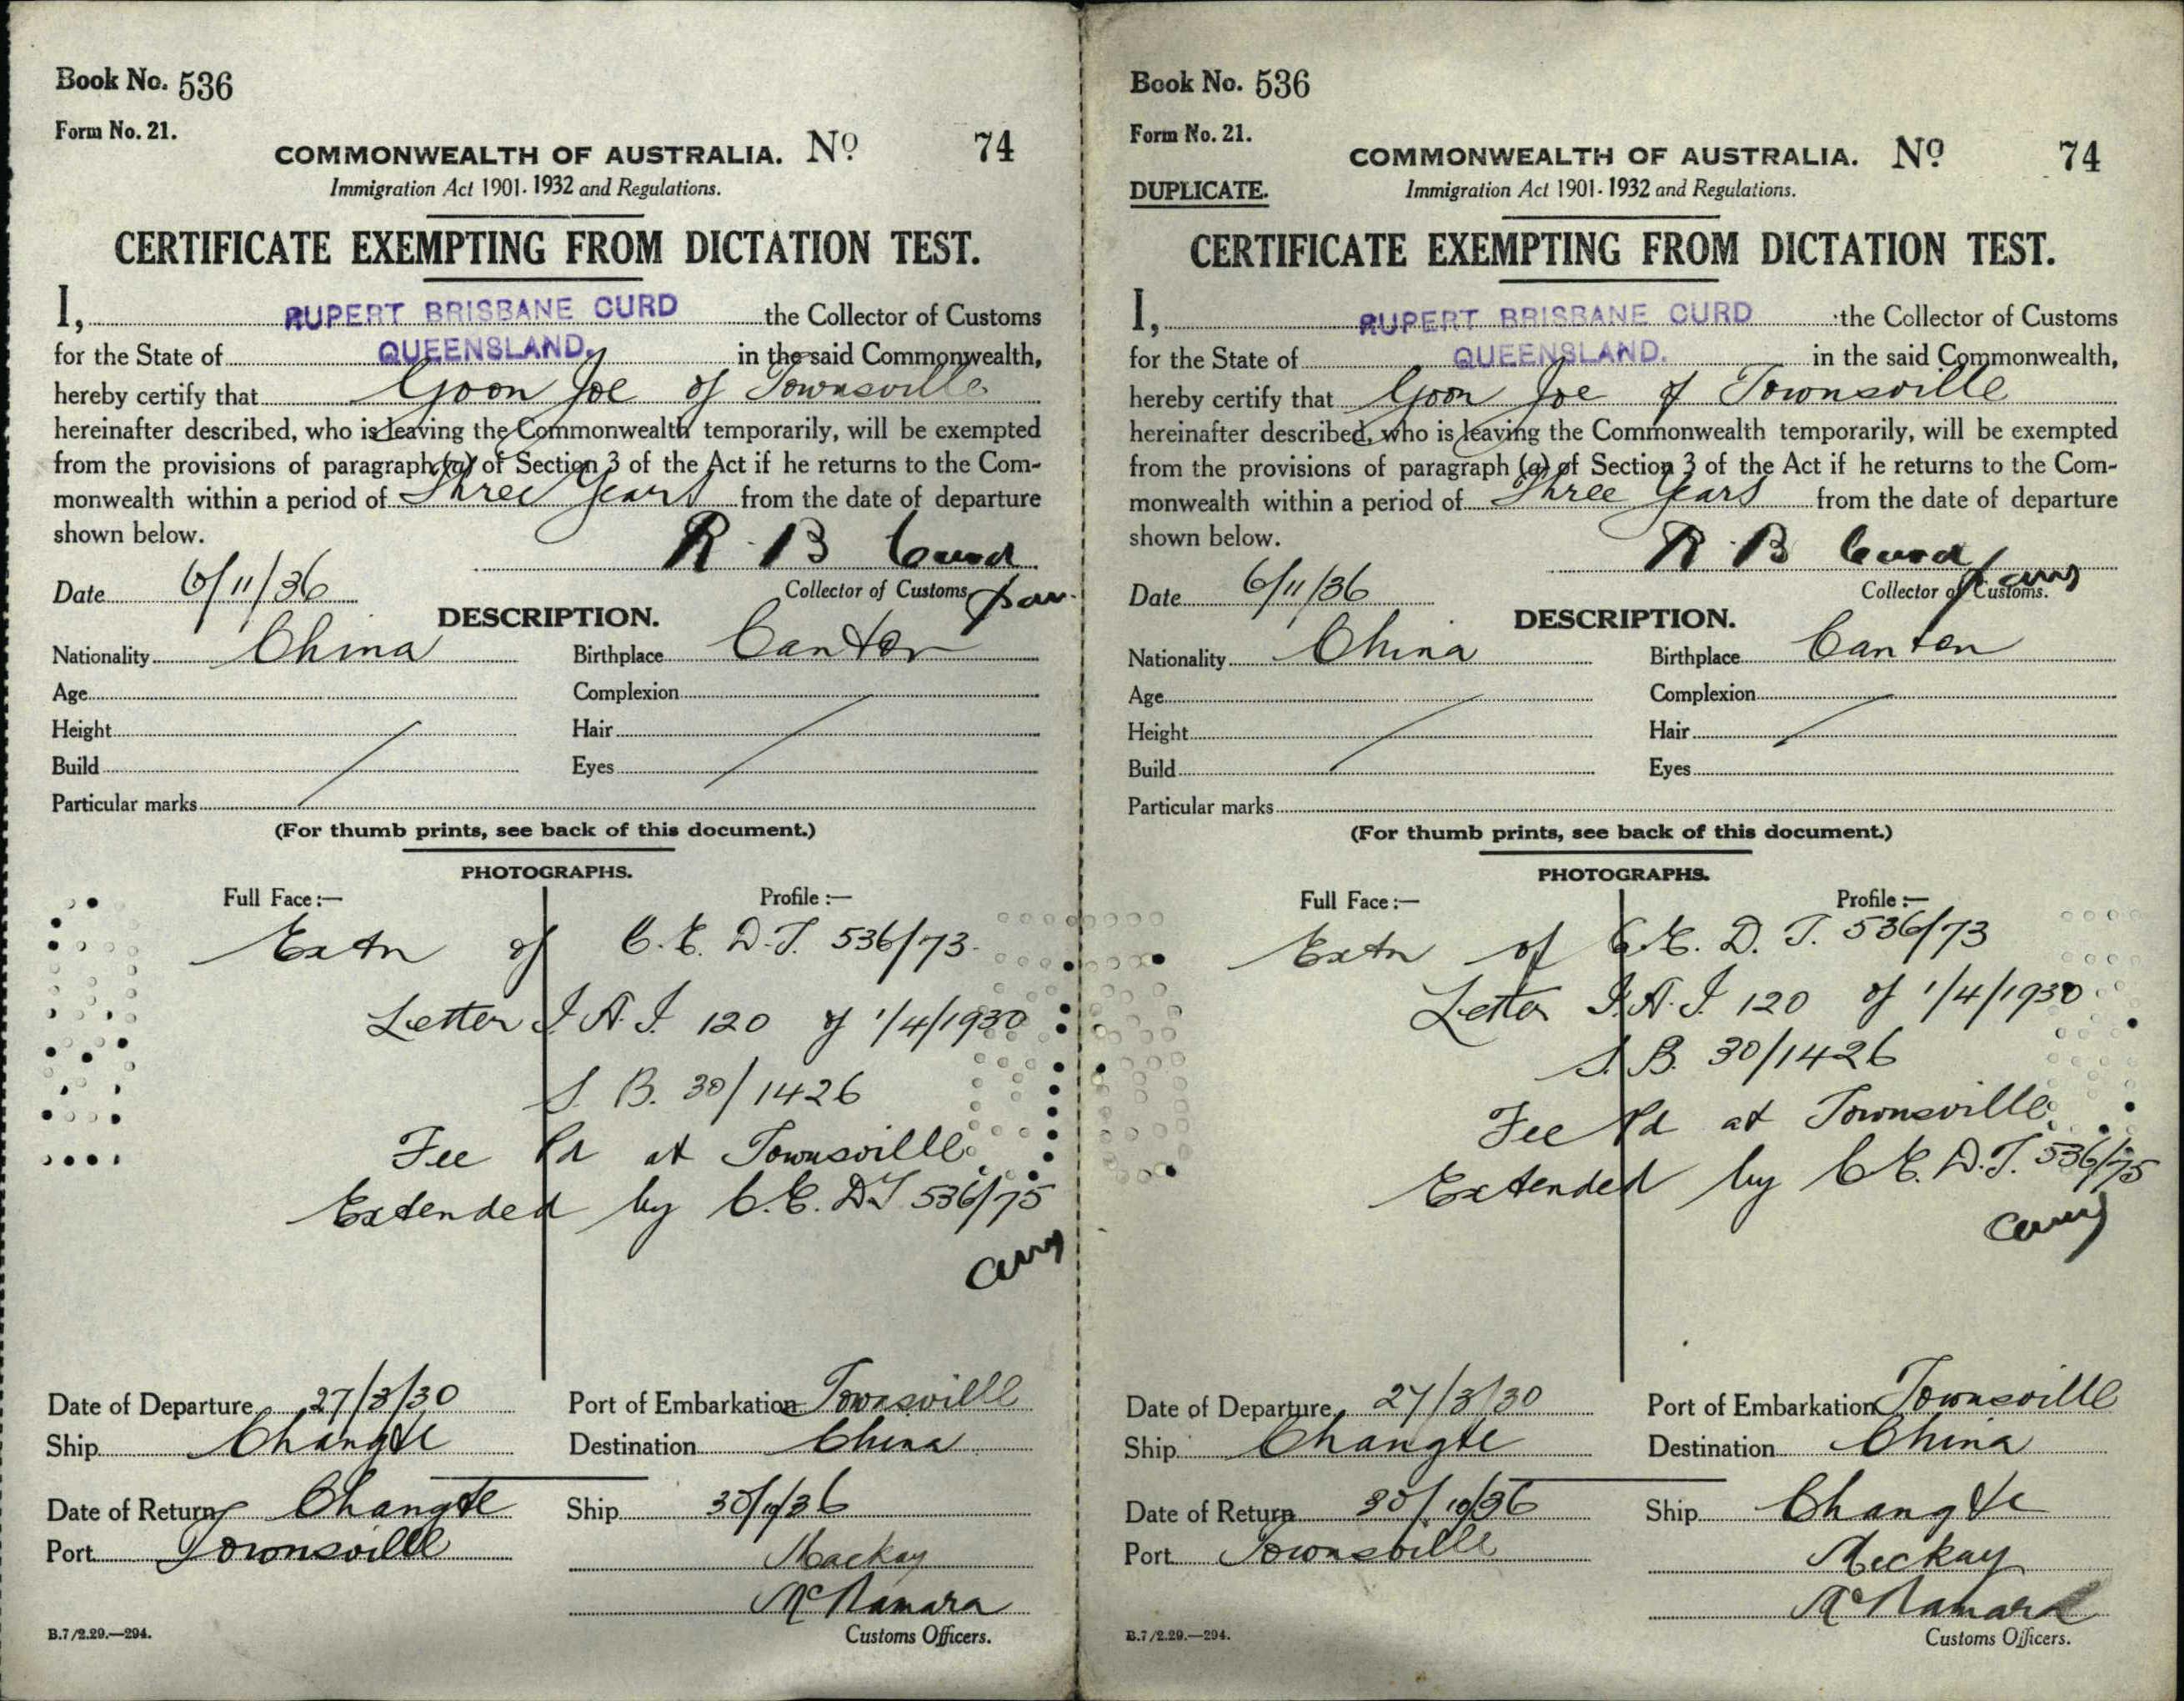 Book No. 536
Form No. 21.
COMMONWEALTH OF AUSTRALIA. Nº 74
Immigration Act 1901-1932 and Regulations.
CERTIFICATE EXEMPTING FROM DICTATION TEST.
I, RUPERT BRISBANE CURD the Collector of Customs
for the State of QUEENSLAND. in the said Commonwealth,
hereby certify that Goon Joe of Townsville
hereinafter described, who is leaving the Commonwealth temporarily, will be exempted
from the provisions of paragraph (a) of Section 3 of the Act if he returns to the Com-
monwealth within a period of Three Years from the date of departure
shown below.
R. B Curd
Date 6/11/36
Collector of Customs
DESCRIPTION.
Nationality China Birthplace Canton
Age Complexion
Height Hair
Build Eyes
Particular marks
(For thumb prints, see back of this document.)
PHOTOGRAPHS.
Full Face:— Profile:—
Extn of C.E.D.T. 536/73.
Letter I.A.I. 120 of 1/4/1930
S.B. 30/1426
Fee Pd at Townsville
Extended by C.E.D.T 536/75
Date of Departure 27/3/30 Port of Embarkation Townsville
Ship Changte Destination China
Date of Return Changte Ship 30/10/36
Port Townsville Mackay
McNamara
B.7/2.29.—294. Customs Officers.
Book No. 536
Form No. 21.
COMMONWEALTH OF AUSTRALIA. Nº 74
DUPLICATE. Immigration Act 1901-1932 and Regulations.
CERTIFICATE EXEMPTING FROM DICTATION TEST.
I, RUPERT BRISBANE CURD the Collector of Customs
for the State of QUEENSLAND. in the said Commonwealth,
hereby certify that Goon Joe of Townsville
hereinafter described, who is leaving the Commonwealth temporarily, will be exempted
from the provisions of paragraph (a) of Section 3 of the Act if he returns to the Com-
monwealth within a period of Three Years from the date of departure
shown below.
R. B Curd
Date 6/11/36
Collector of Customs.
DESCRIPTION.
Nationality China Birthplace Canton
Age Complexion
Height Hair
Build Eyes
Particular marks
(For thumb prints, see back of this document.)
PHOTOGRAPHS.
Full Face:— Profile:—
Extn of C.E.D.T. 536/73
Letter I.A.I. 120 of 1/4/1930
S.B. 30/1426
Fee Pd at Townsville
Extended by C.E.D.T. 536/75
Date of Departure 27/3/30 Port of Embarkation Townsville
Ship Changte Destination China
Date of Return 30/10/36 Ship Changte
Port Townsville Mackay
McNamara
B.7/2.29.—294. Customs Officers.